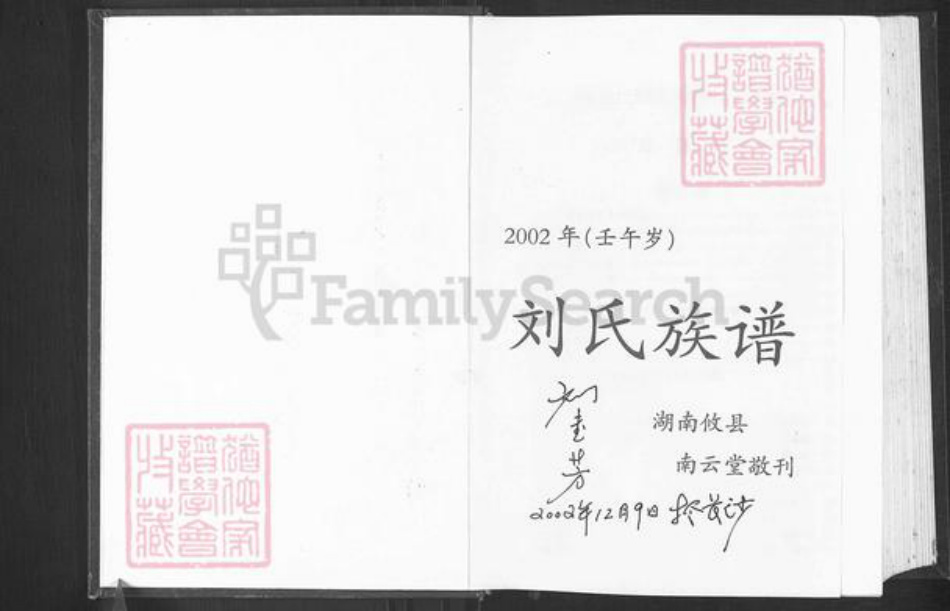 猶他家
譜學會
收藏
2002 年(壬午岁)
FamilySearch
刘氏族谱
湖南攸县
南云堂敬刊
2002年12月9日
猶他家
譜學會
收藏